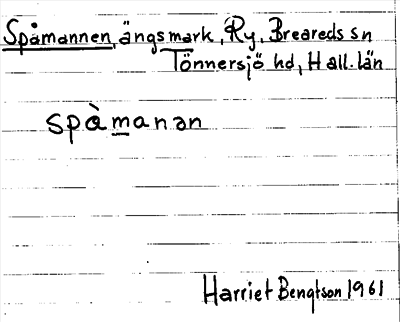 Spåmannen, ängsmark, Ry, Breareds sn
Tönnersjö hd, Hall. län
spå̀manan
Harriet Bengtson 1961